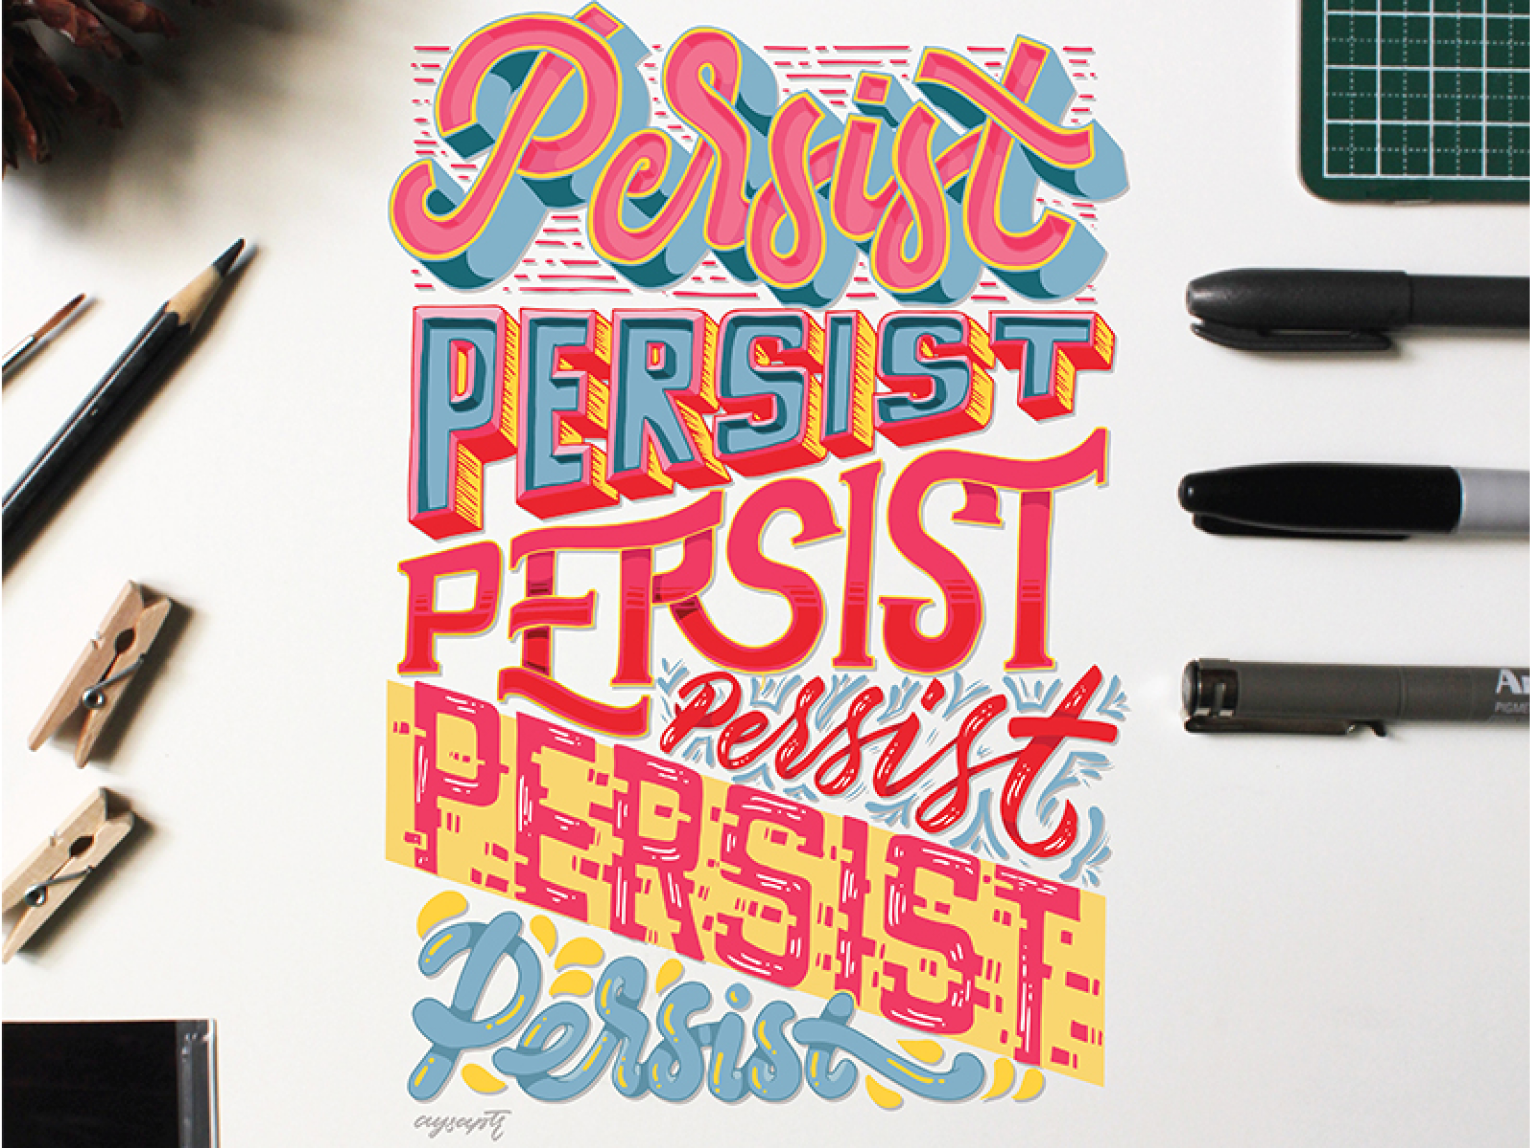 Persist
PERSIST
PERSIST
Persist
PERSIST
Persist
PIGME